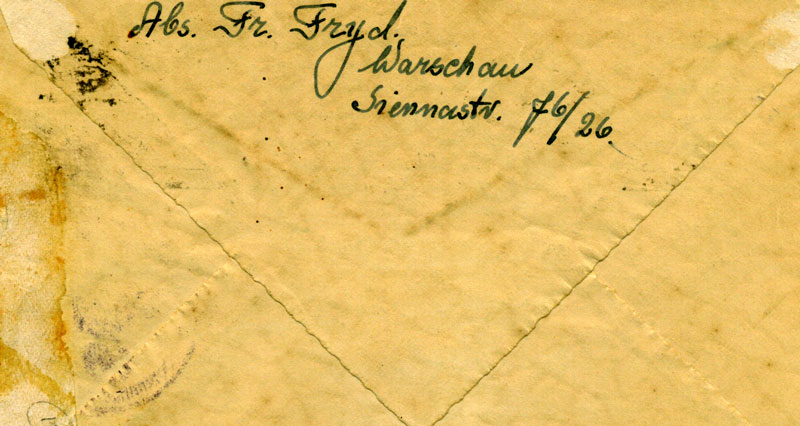 Abs. Fr. Fryd.
Warschau
Siennastr. 76/26.